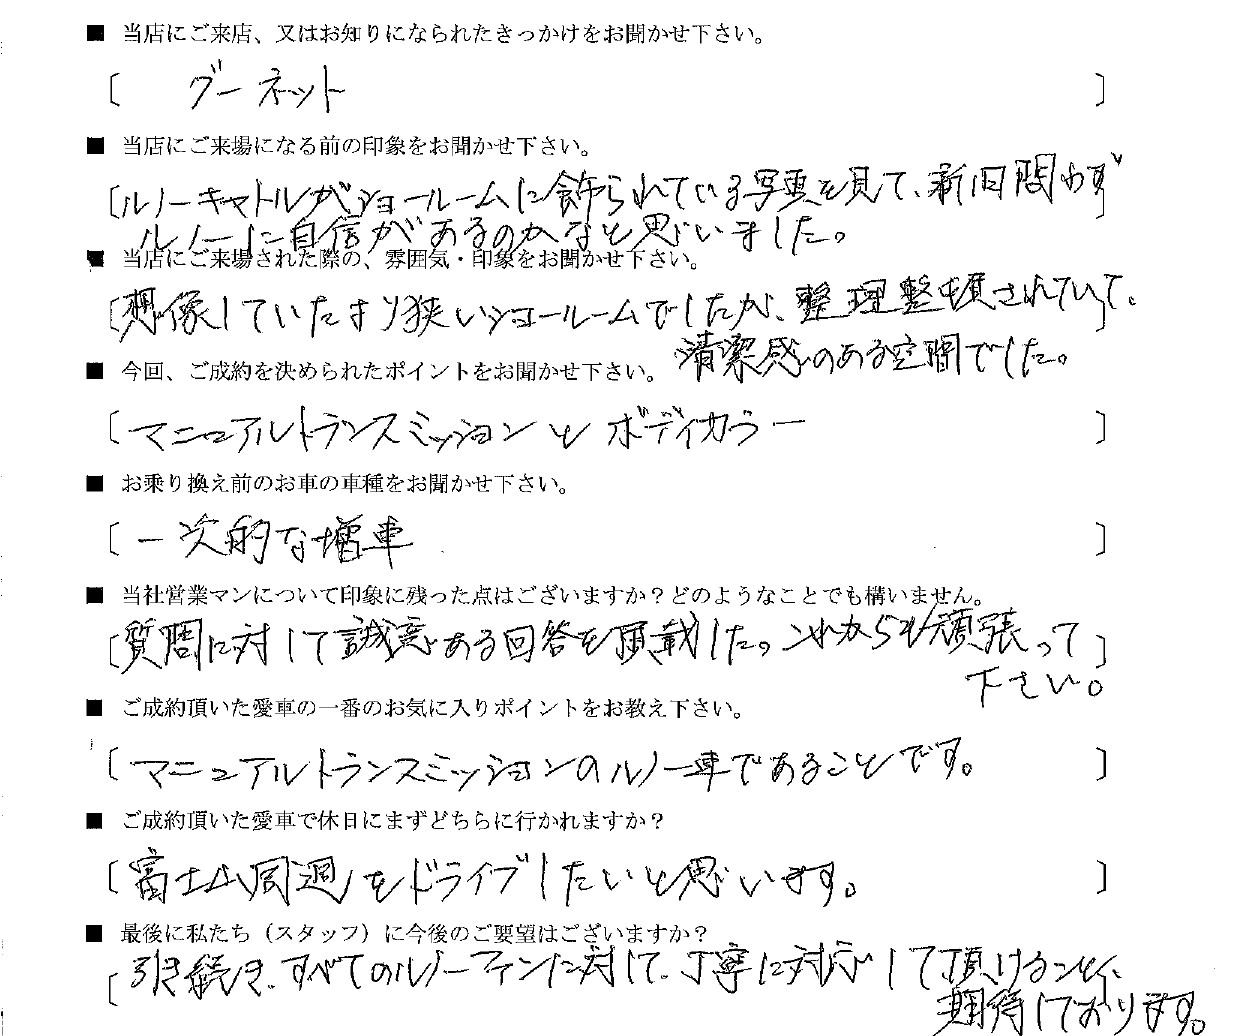 ■ 当店にご来店、又はお知りになられたきっかけをお聞かせ下さい。
〔 グーネット 〕
■ 当店にご来場になる前の印象をお聞かせ下さい。
〔ルノーキャトルがショールームに飾られている写真を見て、新旧問わず〕
ルノーに自信があるのかなと思いました。
■ 当店にご来場された際の、雰囲気・印象をお聞かせ下さい。
〔想像していたより狭いショールームでしたが、整理整頓されていて、
清潔感のある空間でした。
■ 今回、ご成約を決められたポイントをお聞かせ下さい。
〔マニュアルトランスミッションとボディカラー 〕
■ お乗り換え前のお車の車種をお聞かせ下さい。
〔一次的な増車 〕
■ 当社営業マンについて印象に残った点はございますか？どのようなことでも構いません。
〔質問に対して誠意ある回答を頂戴した。これからも頑張って〕
下さい。
■ ご成約頂いた愛車の一番のお気に入りポイントをお教え下さい。
〔マニュアルトランスミッションのルノー車であることです。 〕
■ ご成約頂いた愛車で休日にまずどちらに行かれますか？
〔富士山周週をドライブしたいと思います。 〕
■ 最後に私たち（スタッフ）に今後のご要望はございますか？
〔引き続き、すべてのルノーファンに対して、丁寧に対応して頂けること、
期待しております。